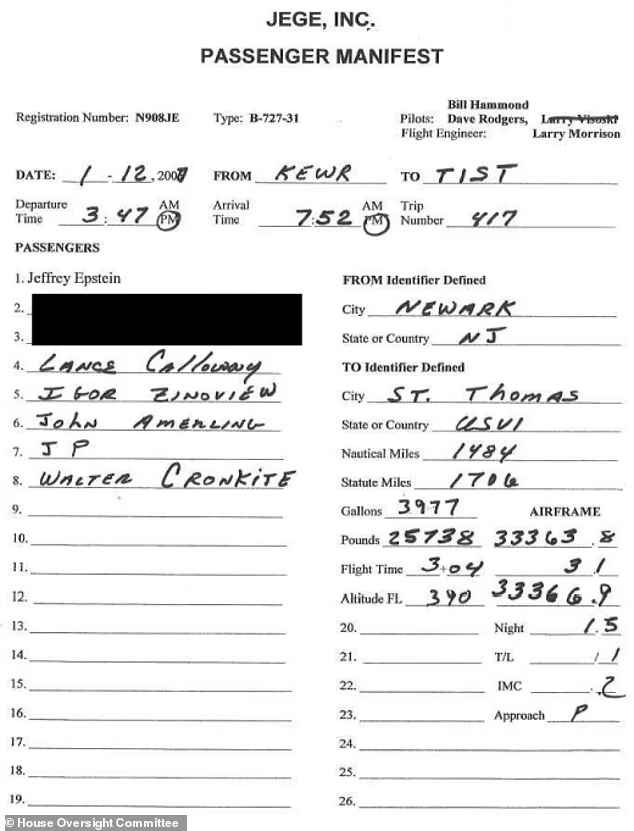 JEGE, INC.
PASSENGER MANIFEST
Bill Hammond
Registration Number: N908JE Type: B-727-31 Pilots: Dave Rodgers, Larry Visoski
Flight Engineer: Larry Morrison
DATE: 1 - 12, 2007 FROM KEWR TO TIST
Departure Time 3:47 AM PM Arrival Time 7:52 AM PM Trip Number 417
PASSENGERS
1. Jeffrey Epstein FROM Identifier Defined
2. City NEWARK
3. State or Country NJ
4. LANCE CALLOWAY TO Identifier Defined
5. IGOR ZINOVIEW City ST. THOMAS
6. JOHN AMERLING State or Country USVI
7. JP Nautical Miles 1484
8. WALTER CRONKITE Statute Miles 1706
9. Gallons 3977 AIRFRAME
10. Pounds 25738 33363.8
11. Flight Time 3+04 3 1
12. Altitude FL 390 33366.9
13. 20. Night 1.5
14. 21. T/L 1/1
15. 22. IMC .2
16. 23. Approach P
17. 24.
18. 25.
19. 26.
© House Oversight Committee